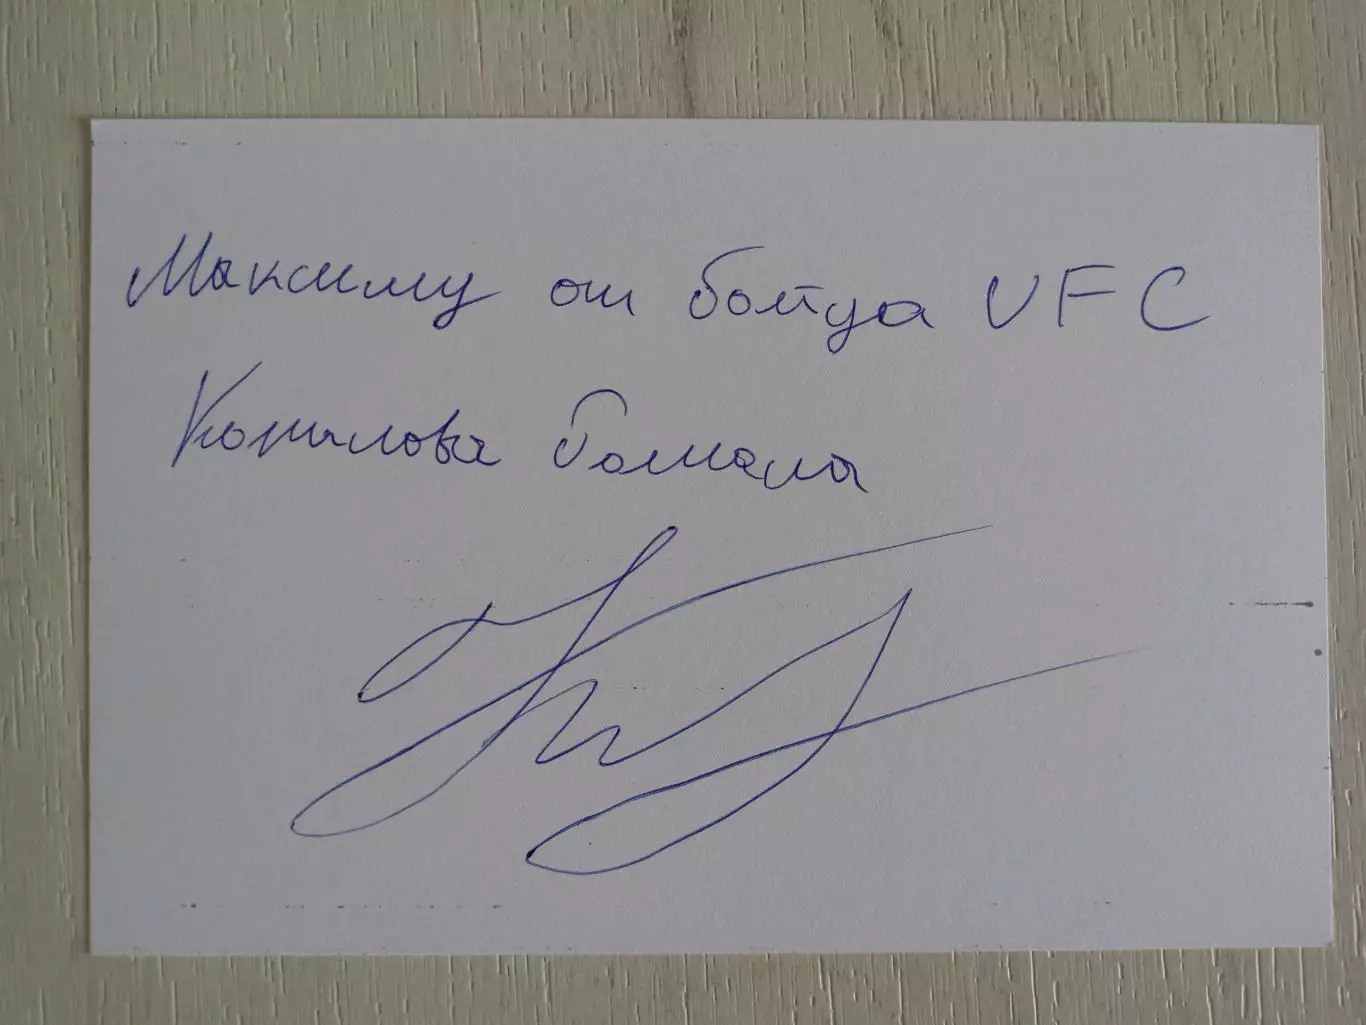 Максиму от бойца UFC
Копылова Романа